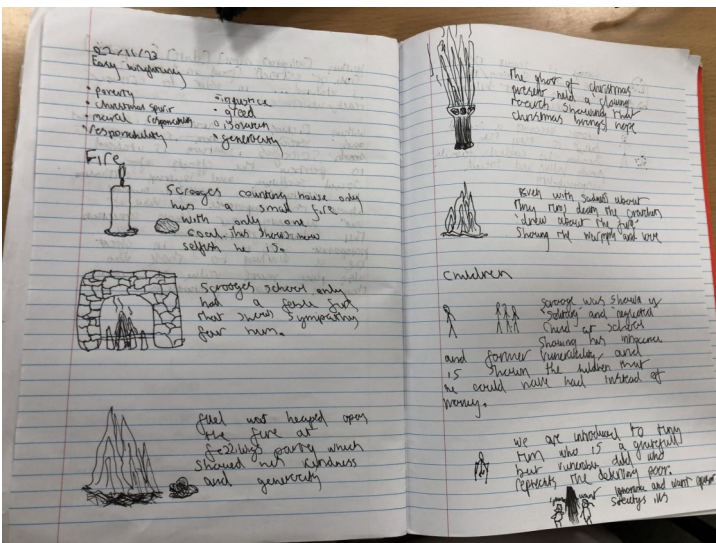 22/11/23
Easy
• poverty
• injustice
• christmas spirit
• greed
• moral responsibility
• isolation
• responsibility
• generosity
Fire
Scrooges counting house only
has a small fire
with only one
coal. this shows how
selfish he is.
Scrooges school only
had a feble fire
that shows sympathy
for him.
fuel was heaped upon
the fire at
fezziwigs party which
showed his kindness
and generosity
The ghost of christmas
present held a glowing
torch showing that
christmas brings hope
Even with sadness about
tiny tims death the cratchits
'drew about the fire'
showing the warmth and love
children
scrooge was shown as
'solitary' and neglected
child at school
showing his innocence
and former vulnerability and
is shown the children that
he could have had instead of
money.
we are introduced to tiny
tim who is a grateful
but vunerable child who
the deserving poor.
want
ignorance and want
societys ills